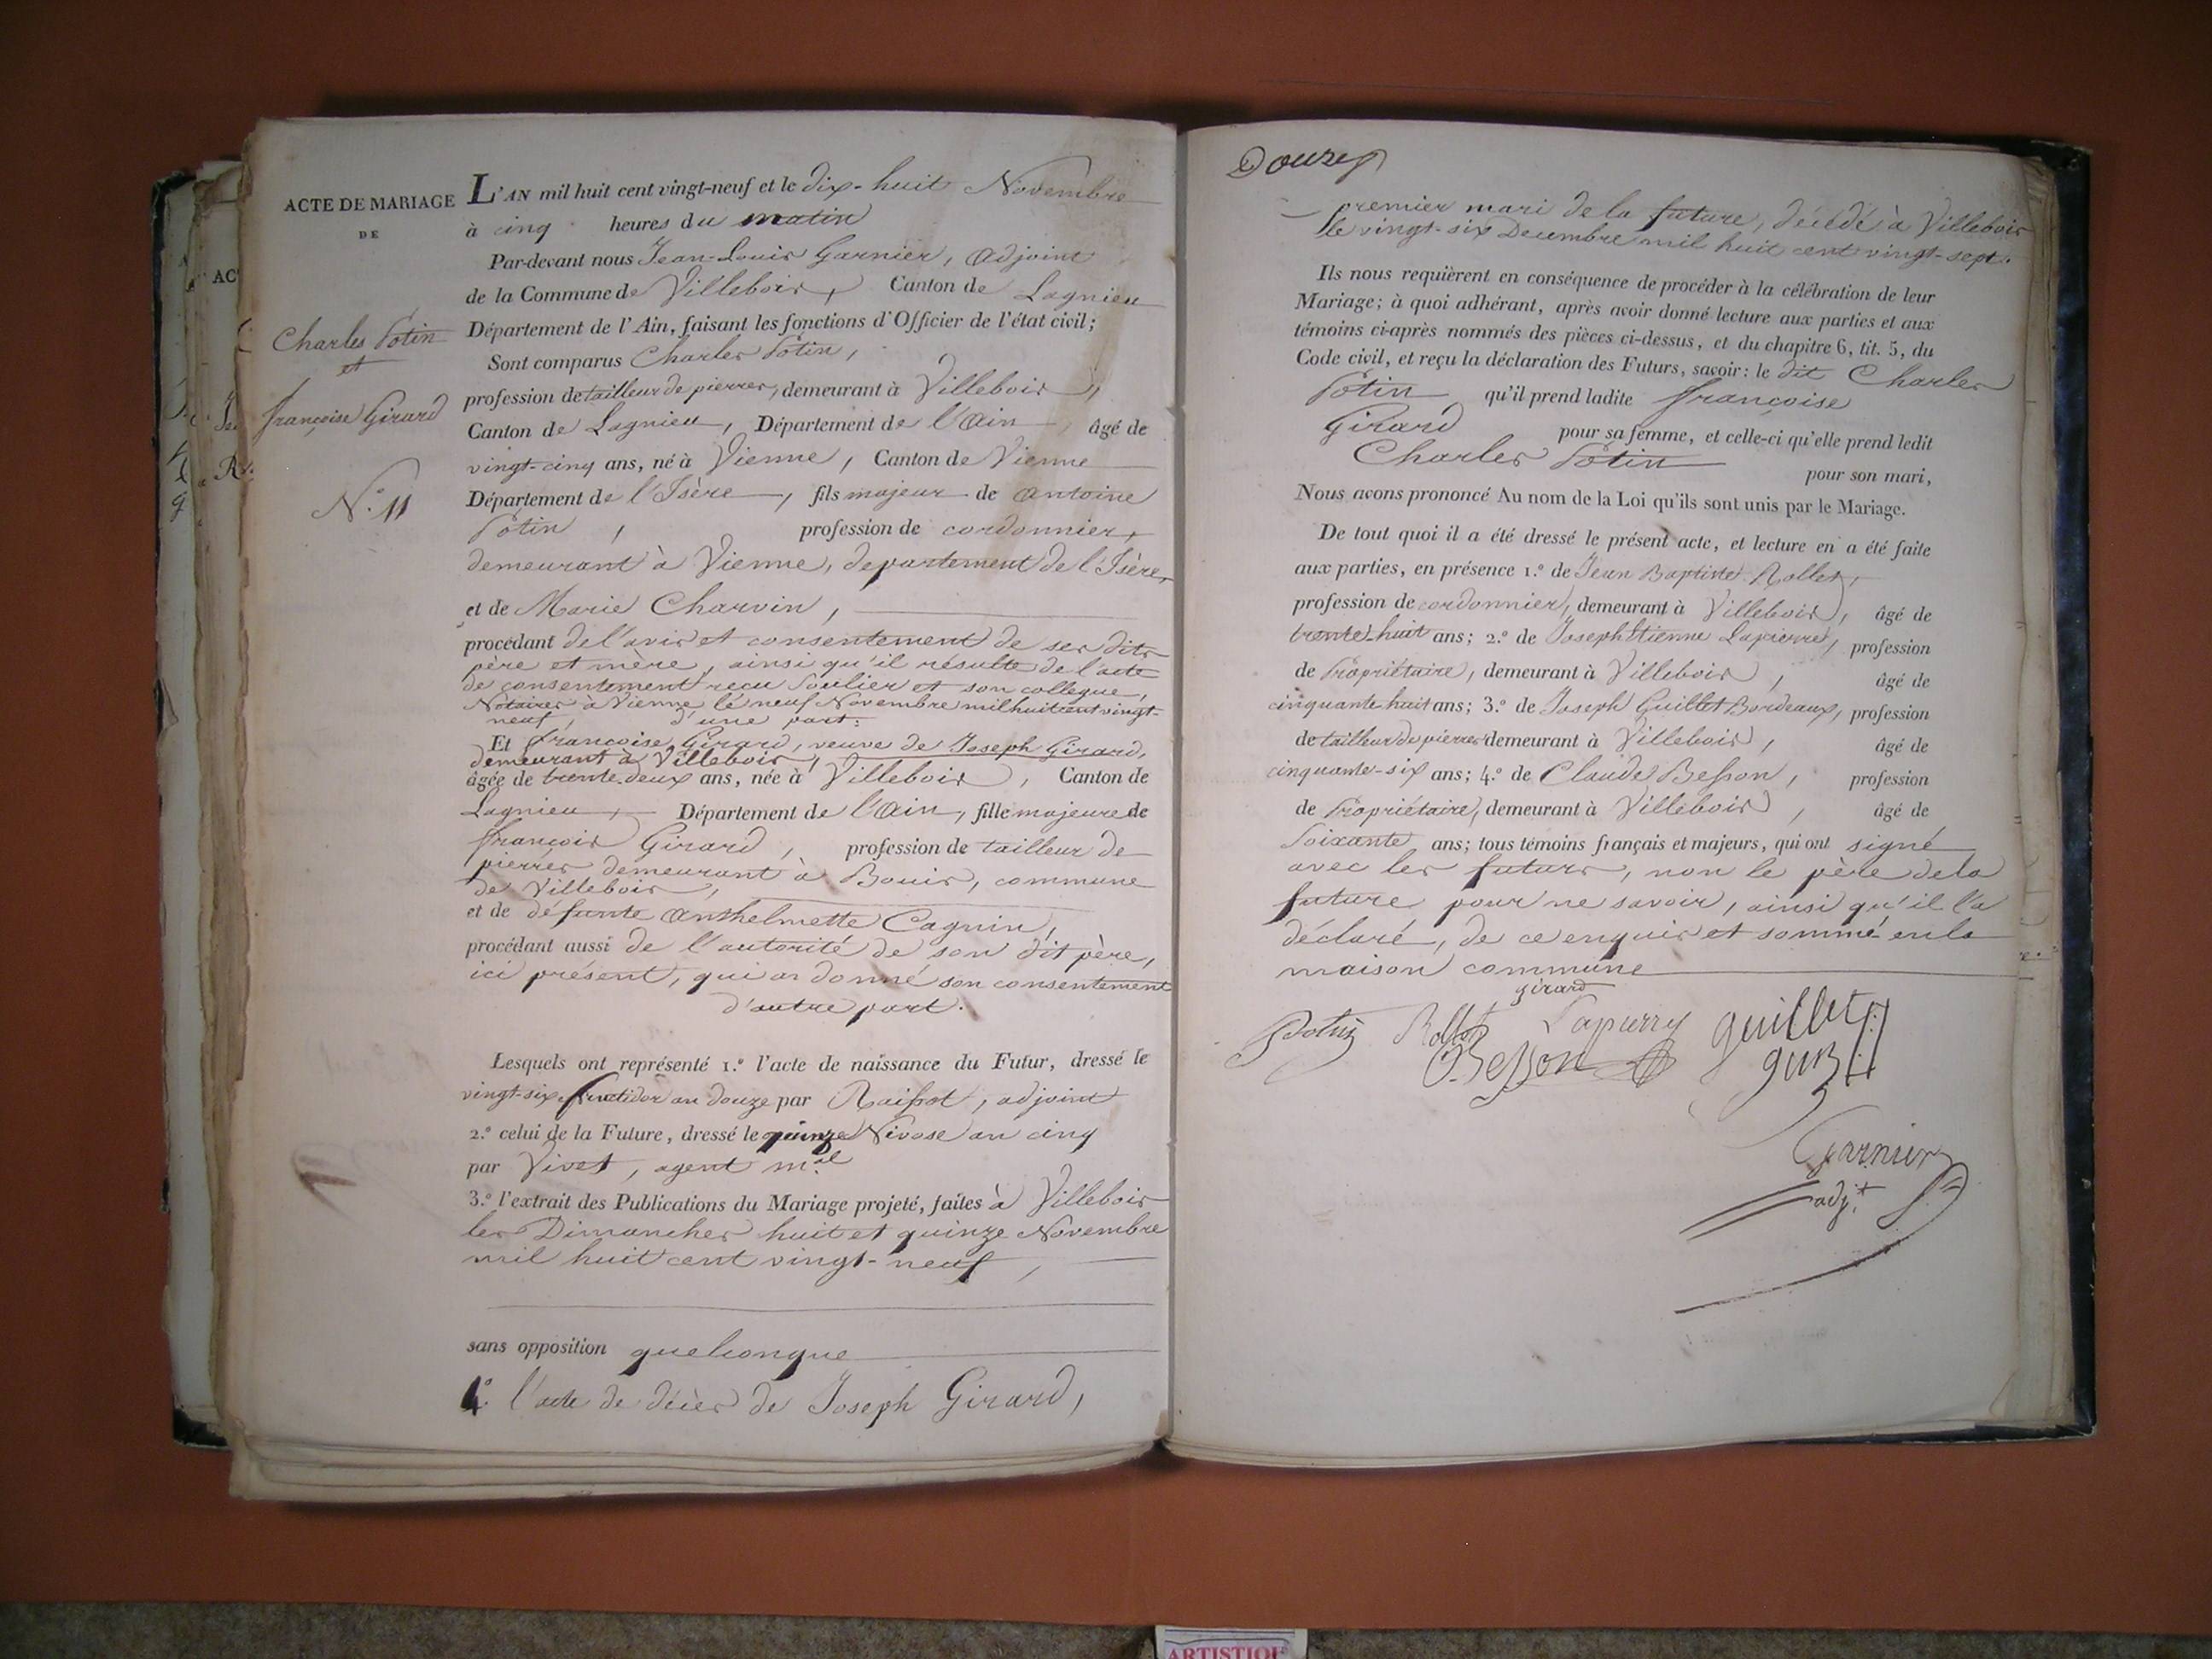 ACTE DE MARIAGE
DE
Charles Potin
et
françoise Girard
N.º 11
L'AN mil huit cent vingt-neuf et le dix-huit Novembre
à cinq heures du matin
Par-devant nous Jean-Louis Garnier, adjoint
de la Commune de Villebois, Canton de Lagnieu
Département de l'Ain, faisant les fonctions d'Officier de l'état civil;
Sont comparus Charles Potin,
profession de tailleur de pierres, demeurant à Villebois,
Canton de Lagnieu, Département de l'Ain âgé de
vingt-cinq ans, né à Vienne, Canton de Vienne
Département de l'Isère, fils majeur de antoine
Potin, profession de cordonnier,
demeurant à Vienne, departement de l'Isère,
et de Marie Charvin,
procédant de l'avis et consentement de ses dits
père et mère, ainsi qu'il résulte de l'acte
de consentement reçu Soulier et son collegue,
Notaires à Vienne le neuf Novembre mil huit cent vingt-
neuf, d'une part:
Et françoise Girard, veuve de Joseph Girard,
demeurant à Villebois,
âgée de trente-deux ans, née à Villebois, Canton de
Lagnieu, Département de l'Ain, fille majeure de
françois Girard, profession de tailleur de
pierres demeurant à Bouis, commune
de Villebois,
et de défunte anthelmette Cagnin,
procédant aussi de l'autorité de son dit père,
ici présent, qui a donné son consentement
d'autre part.
Lesquels ont représenté 1.º l'acte de naissance du Futur, dressé le
vingt-six fructidor an douze par Raissot, adjoint
2.º celui de la Future, dressé le quinze Nivose an cinq
par Vivet, agent m.al
3.º l'extrait des Publications du Mariage projeté, faites à Villebois
les Dimanches huit et quinze Novembre
mil huit cent vingt-neuf,
sans opposition quelconque
4.º l'acte de décès de Joseph Girard,
Douze
premier mari de la future, décédé à Villebois
le vingt-six Decembre mil huit cent vingt-sept.
Ils nous requièrent en conséquence de procéder à la célébration de leur
Mariage; à quoi adhérant, après avoir donné lecture aux parties et aux
témoins ci-après nommés des pièces ci-dessus, et du chapitre 6, tit. 5, du
Code civil, et reçu la déclaration des Futurs, savoir: le dit Charles
Potin qu'il prend ladite françoise
Girard pour sa femme, et celle-ci qu'elle prend ledit
Charles Potin pour son mari,
Nous avons prononcé Au nom de la Loi qu'ils sont unis par le Mariage.
De tout quoi il a été dressé le présent acte, et lecture en a été faite
aux parties, en présence 1.º de Jean Baptiste Rollet,
profession de cordonnier, demeurant à Villebois, âgé de
trente-huit ans; 2.º de Joseph Etienne Lapierre, profession
de Propriétaire, demeurant à Villebois, âgé de
cinquante huit ans; 3.º de Joseph Guillet Bordeaux, profession
de tailleur de pierres demeurant à Villebois, âgé de
cinquante-six ans; 4.º de Claude Besson, profession
de Propriétaire, demeurant à Villebois, âgé de
Soixante ans; tous témoins français et majeurs, qui ont signé
avec les futurs, non le père de la
future pour ne savoir, ainsi qu'il l'a
déclaré, de ce enquis et sommé en la
maison commune
girard
Potin Rollet Lapierre guillet
Besson
Garnier
adj.t
AC
ARTISTIQUE